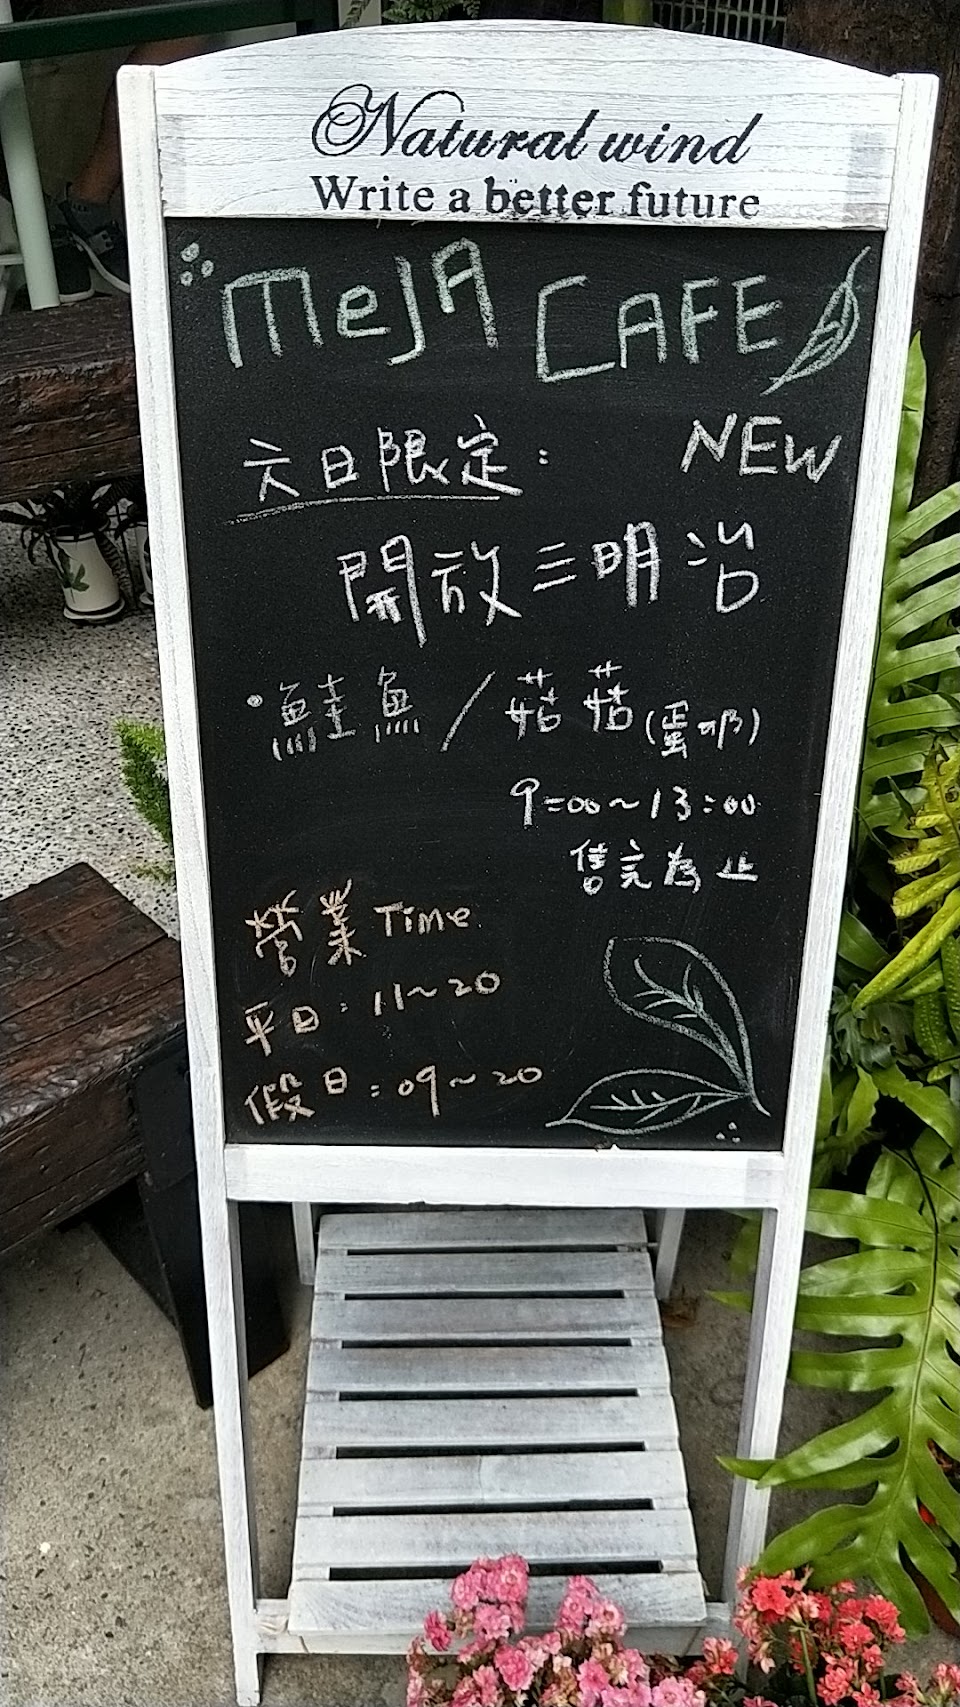 Natural wind
Write a better future
MeJA CAFE
六日限定: NEW
開放三明治
•鮭魚/菇菇(蛋奶)
9:00~13:00
售完為止
營業Time
平日:11~20
假日:09~20